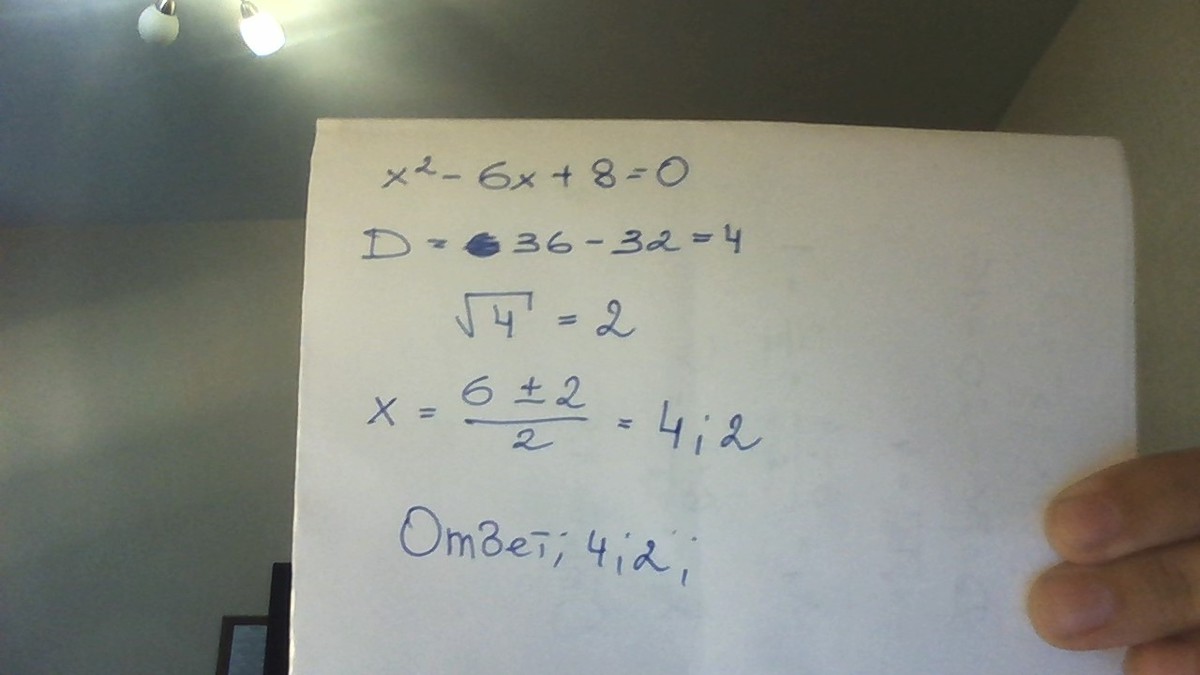 x² - 6x + 8 = 0
D = 36 - 32 = 4
√4 = 2
x = (6 ± 2)/2 = 4; 2
Ответ; 4; 2;